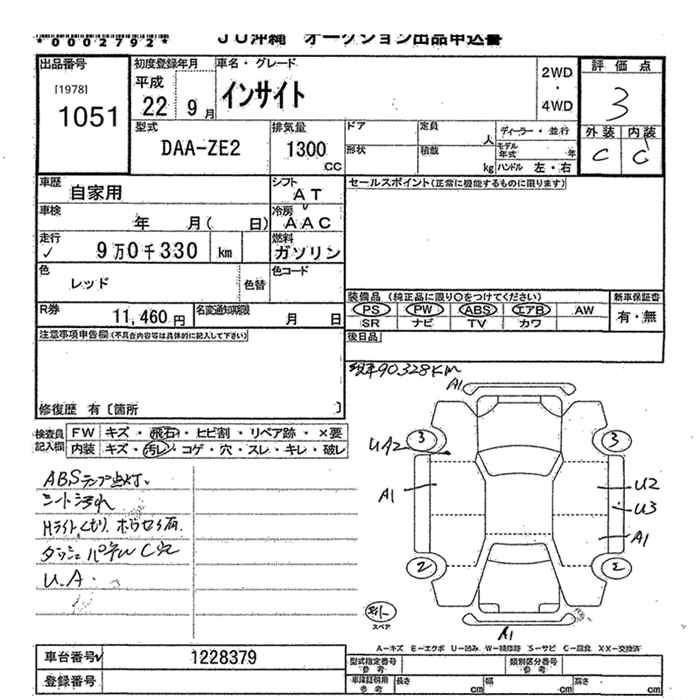 *0002792*
JU沖縄 オークション出品申込書
出品番号
[1978]
1051
初度登録年月
平成
22 9 月
車名・グレード
インサイト
2WD
・
4WD
評価点
3
外装 内装
C C
型式
DAA-ZE2
排気量
1300
CC
ドア
定員
人
ディーラー・並行
モデル年式 年
形状
積載
kg
ハンドル 左・右
車歴
自家用
シフト
AT
セールスポイント(正常に機能するものに限ります)
車検
年 月( 日)
冷房
AAC
走行
9万0千330 km
燃料
ガソリン
色
レッド
色替
色コード
R券
11,460 円
名変通知期限
月 日
装備品 (純正品に限り○をつけてください)
PS PW ABS エアB AW
SR ナビ TV カワ
新車保証書
有・無
後日品
注意事項申告欄(不具合内容等は具体的に記入して下さい)
修復歴 有〔箇所 〕
現車90,328KM
検査員記入欄
FW キズ・飛石・ヒビ割・リペア跡・×要
内装 キズ・汚レ・コゲ・穴・スレ・キレ・破レ
ABSランプ点灯.
シート汚れ
Hライトくもり
ダッシュパネルC穴
U.A.
A1
3
3
UA2
A1
U2
U3
A1
2
2
スペア
A1
A-キズ E-エクボ U-凹み W-補修跡 S-サビ C-腐食 XX-交換済
車台番号 1228379
登録番号
型式指定番号 参考
類別区分番号 参考
車検証明用 参考
長さ cm
幅 cm
高さ cm